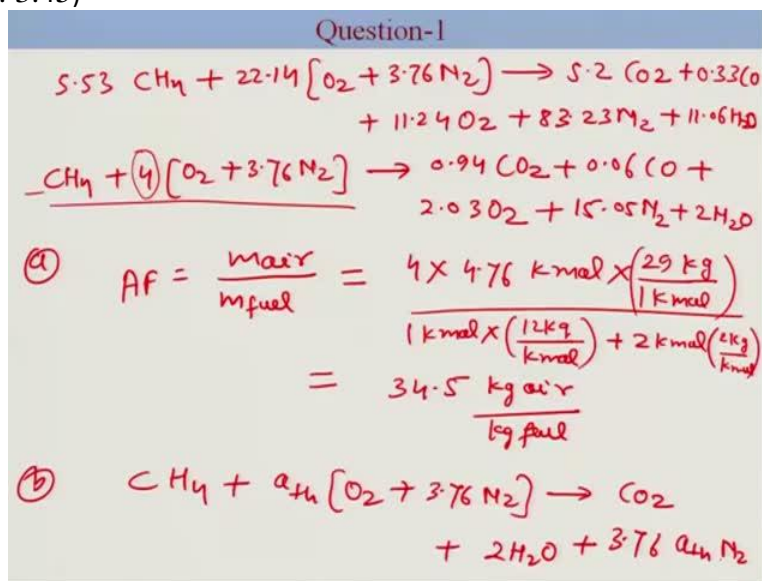 Question-1
5.53 CH4 + 22.14 [O2 + 3.76 N2] → 5.2 CO2 + 0.33 CO
+ 11.24 O2 + 83.23 N2 + 11.06 H2O
_CH4 + 4 [O2 + 3.76 N2] → 0.94 CO2 + 0.06 CO +
2.03 O2 + 15.05 N2 + 2H2O
(a) AF = mair / mfuel = 4 × 4.76 kmol × (29 kg / 1 kmol) / 1 kmol × (12 kg / kmol) + 2 kmol (2 kg / kmol)
= 34.5 kg air / kg fuel
(b) CH4 + ath [O2 + 3.76 N2] → CO2
+ 2H2O + 3.76 ath N2